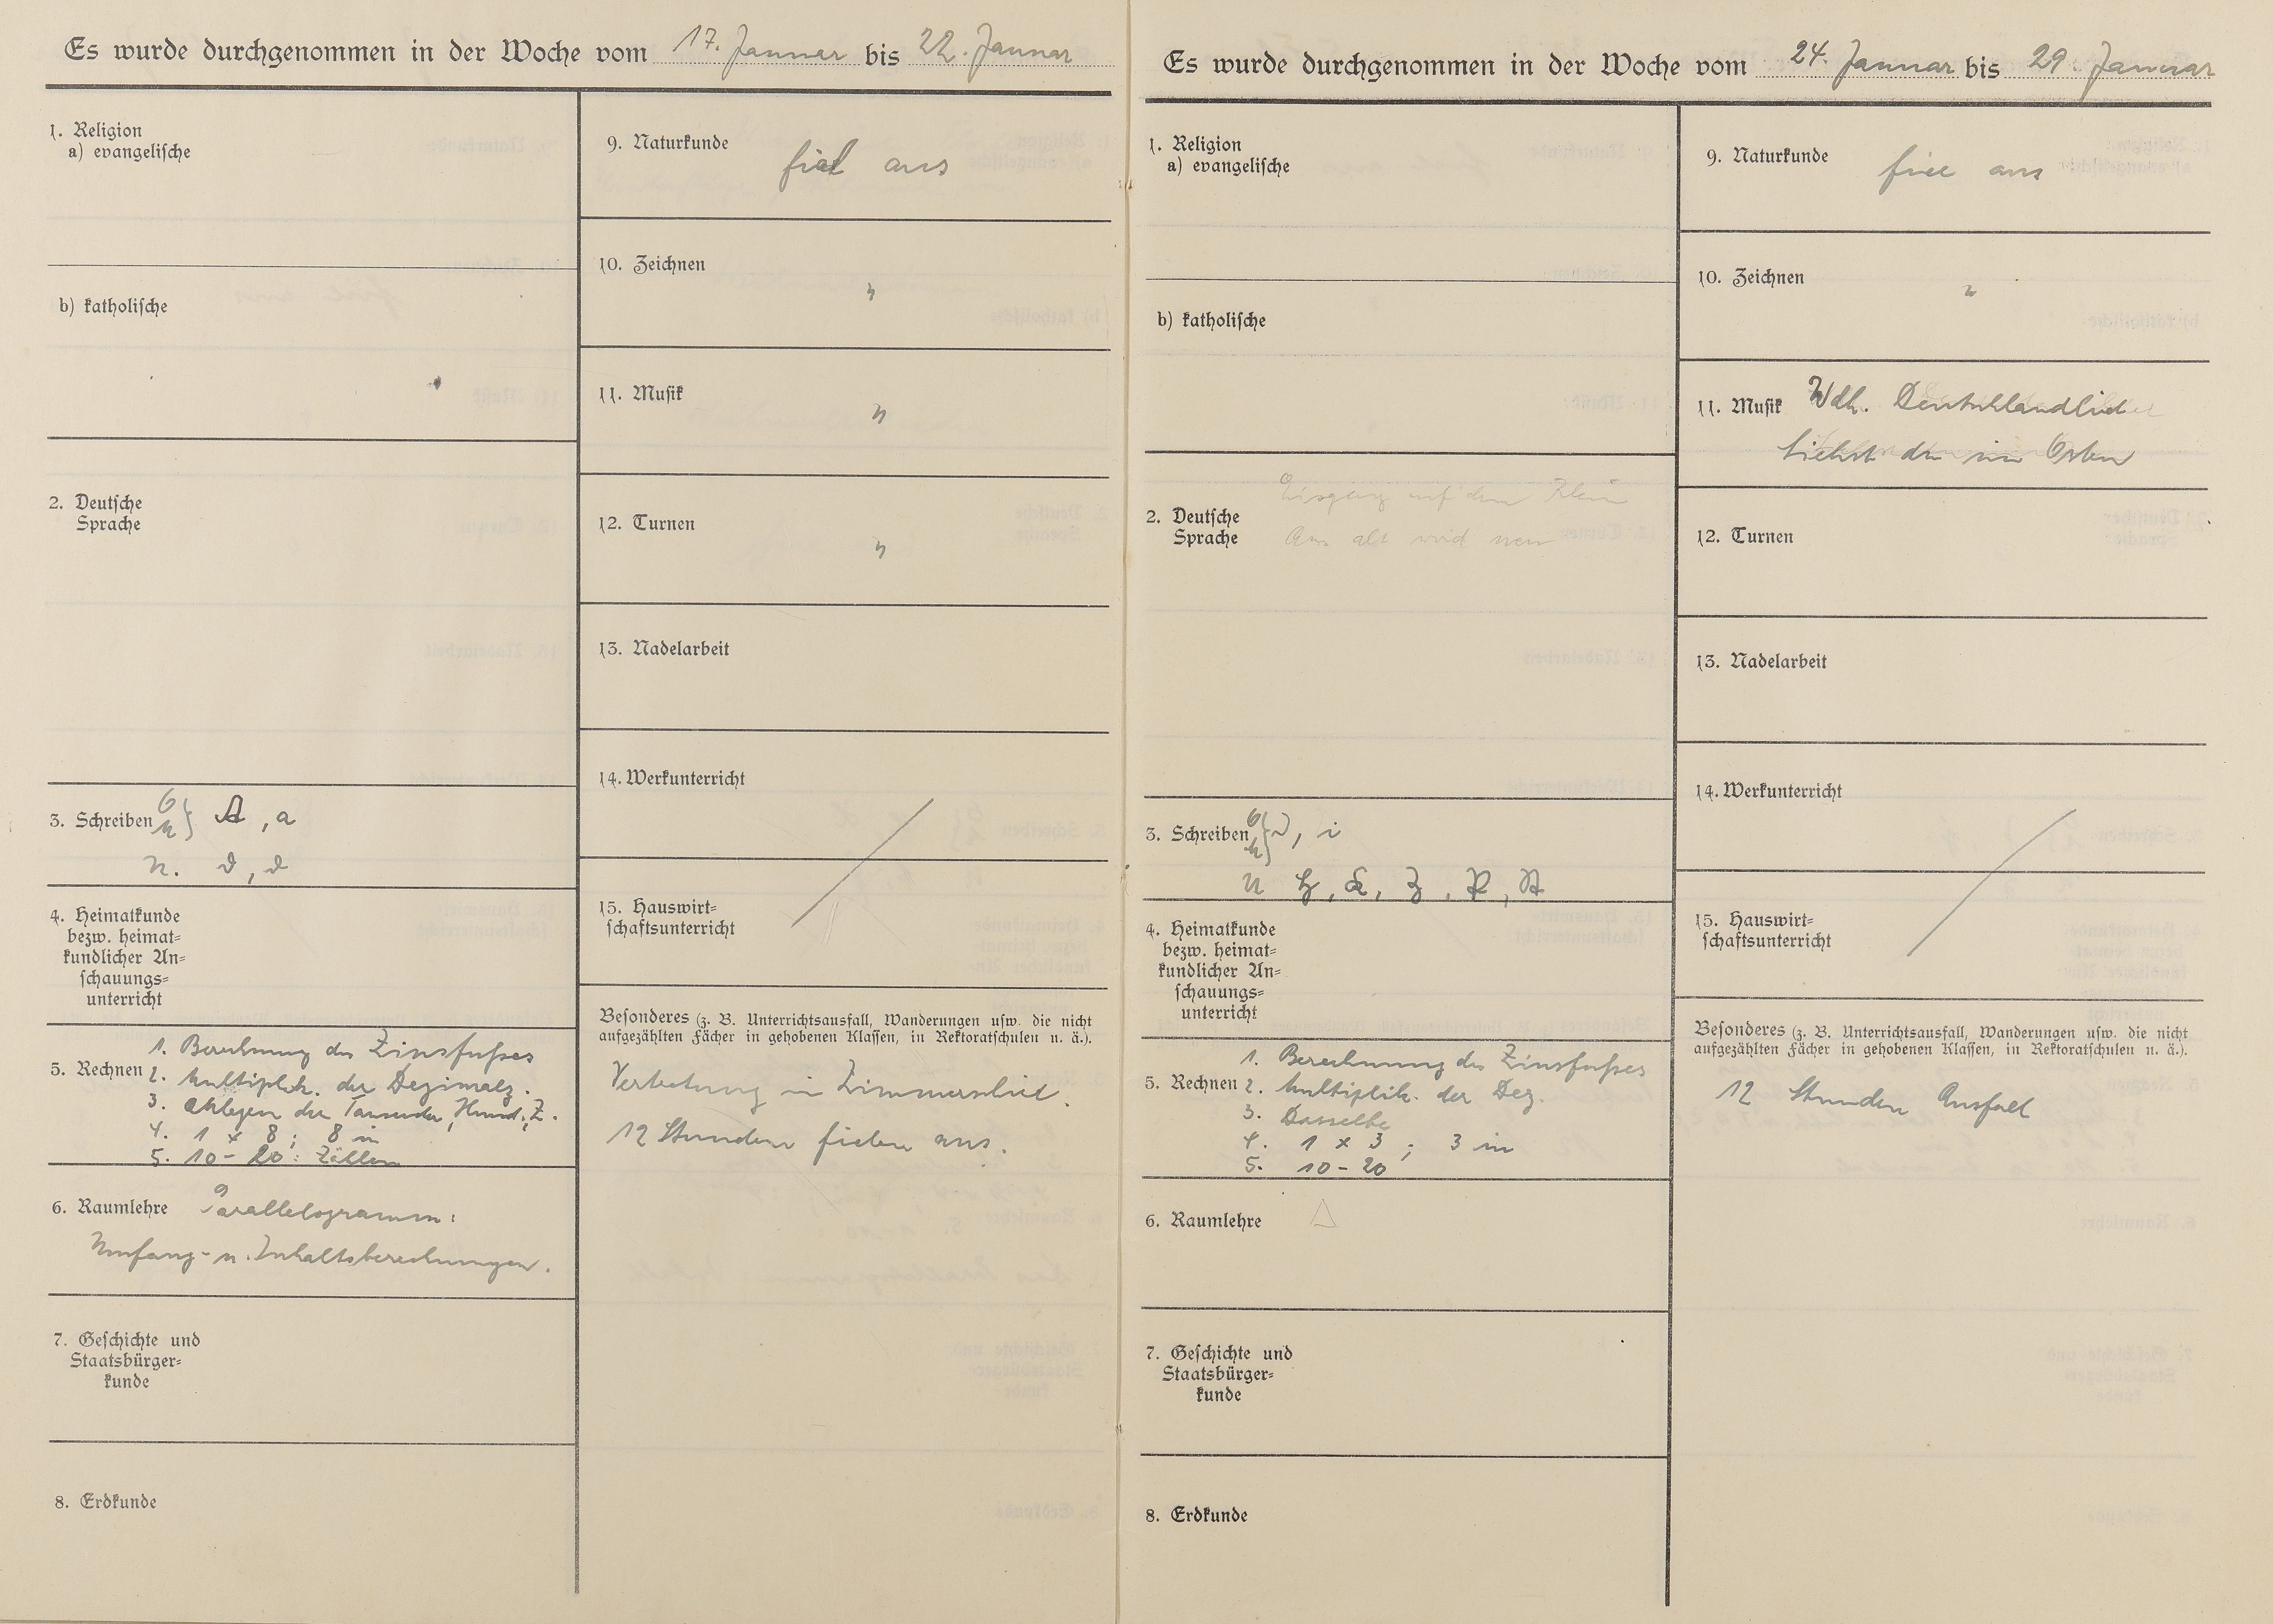 Es wurde durchgenommen in der Woche vom 17. Januar bis 22. Januar
1. Religion
a) evangelische
b) katholische
2. Deutsche
Sprache
3. Schreiben O M } A, a
U.
4. Heimatkunde
bezw. heimat=
kundlicher An=
schauungs=
unterricht
1. Berechnung des Zinsfußes
5. Rechnen 2. Multiplik. der Dezimalz.
3. Ablegen der Tausender, Hund., Z.
4. 1 x 8; 8 in
5. 10-20: Zählen
6. Raumlehre Parallelogramm:
Umfang- u. Inhaltsberechnungen.
7. Geschichte und
Staatsbürger=
kunde
8. Erdkunde
9. Naturkunde fiel aus
10. Zeichnen "
11. Musik "
12. Turnen "
13. Nadelarbeit
14. Werkunterricht
15. Hauswirt=
schaftsunterricht
Besonderes (z. B. Unterrichtsausfall, Wanderungen usw. die nicht
aufgezählten Fächer in gehobenen Klassen, in Rektoratschulen u. ä.).
Vertretung in
12 Stunden fielen aus.
Es wurde durchgenommen in der Woche vom 24. Januar bis 29. Januar
1. Religion
a) evangelische
b) katholische
auf dem
2. Deutsche
Sprache Aus alt wird neu
3. Schreiben O M } , i
U
4. Heimatkunde
bezw. heimat=
kundlicher An=
schauungs=
unterricht
1. Berechnung des Zinsfußes
5. Rechnen 2. Multiplik. der Dez.
3. Dasselbe
4. 1 x 3; 3 in
5. 10-20
6. Raumlehre △
7. Geschichte und
Staatsbürger=
kunde
8. Erdkunde
9. Naturkunde fiel aus
10. Zeichnen "
11. Musik Wdh. Deutschlandlied
Siehst du im Osten
12. Turnen
13. Nadelarbeit
14. Werkunterricht
15. Hauswirt=
schaftsunterricht
Besonderes (z. B. Unterrichtsausfall, Wanderungen usw. die nicht
aufgezählten Fächer in gehobenen Klassen, in Rektoratschulen u. ä.).
12 Stunden Ausfall